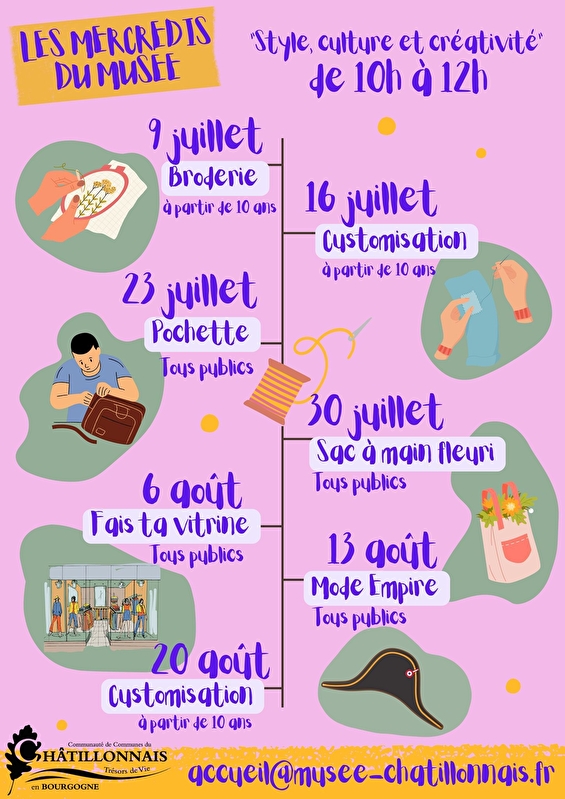 LES MERCREDIS
DU MUSEE
"Style, culture et créativité"
de 10h à 12h
9 juillet
Broderie
à partir de 10 ans
16 juillet
Customisation
à partir de 10 ans
23 juillet
Pochette
Tous publics
30 juillet
Sac à main fleuri
Tous publics
6 août
Fais ta vitrine
Tous publics
13 août
Mode Empire
Tous publics
20 août
Customisation
à partir de 10 ans
Communauté de Communes du
CHÂTILLONNAIS
Trésors de Vie
en BOURGOGNE
accueil@musee-chatillonnais.fr